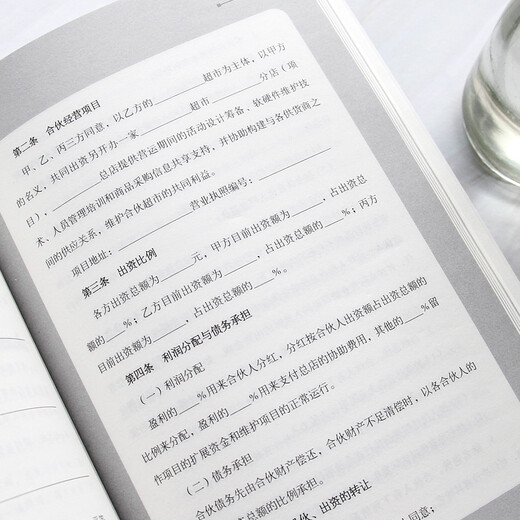 第二条 合伙经营项目
甲、乙、丙三方同意，以乙方的________超市为主体，以甲方
的名义，共同出资另开办一家________超市________分店（项
目），________总店提供营运期间的活动设计筹备、软硬件维护技
术、人员管理培训和商品采购信息共享支持，并协助构建与各供货商之
间的供应关系，维护合伙超市的共同利益。
项目地址：________营业执照编号：________
第三条 出资比例
各方出资总额为____元，甲方目前出资额为____，占出资总
额的____%；乙方目前出资额为____，占出资总额的____%；丙方
目前出资额为____，占出资总额的____%。
第四条 利润分配与债务承担
（一）利润分配
盈利的____%用来合伙人分红，分红按合伙人出资额占出资总额的
比例来分配，盈利的____%用来支付总店的协助费用，其他的____%留
作项目的扩展资金和维护项目的正常运行。
（二）债务承担
合伙债务先由合伙财产偿还，合伙财产不足清偿时，以各合伙人的
总额的比例承担。
伙、出资的转让
同意；